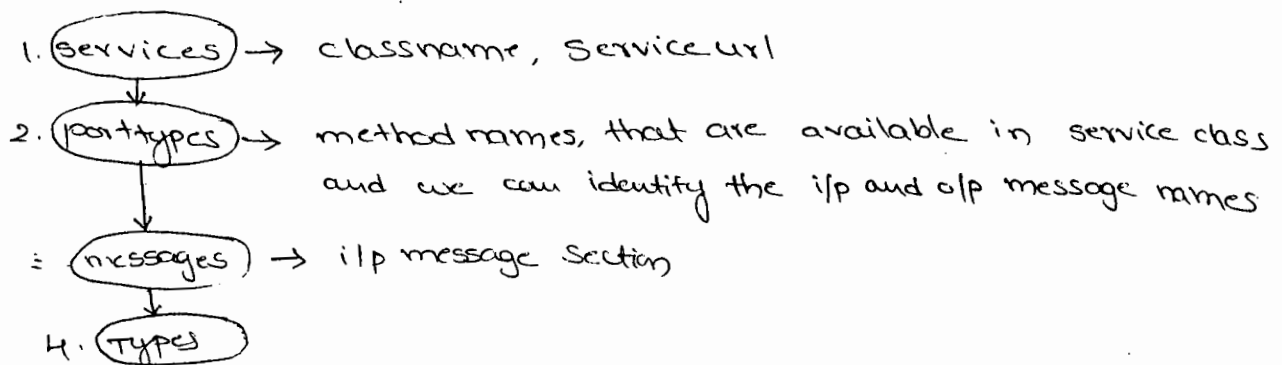 1. services → classname, Service url
2. porttypes → method names, that are available in service class
and we can identify the i/p and o/p message names
: messages → i/p message Section
4. Types